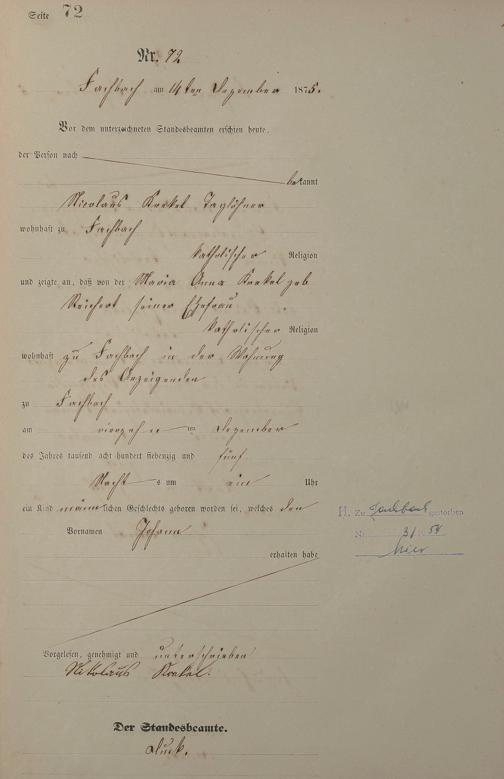 Seite 72
Nr. 72
Fachbach am 14ten Dezember 1875.
Vor dem unterzeichneten Standesbeamten erschien heute,
der Person nach
bekannt
Nicolaus Kaekel Taglöhner
wohnhaft zu Fachbach
katholischer Religion
und zeigte an, daß von der Maria Anna Kaekel geb
Reichert seiner Ehefrau
katholischer Religion
wohnhaft zu Fachbach in der Wohnung
des Anzeigenden
zu Fachbach
am vierzehnten Dezember
des Jahres tausend acht hundert siebenzig und fünf
Nachts um ein Uhr
ein Kind männlichen Geschlechts geboren worden sei, welches den
Vornamen Johann
erhalten habe
Vorgelesen, genehmigt und unterschrieben
Nikolaus
Der Standesbeamte.
H. Zu Fachbach gestorben
Nr. 3/1954
hier